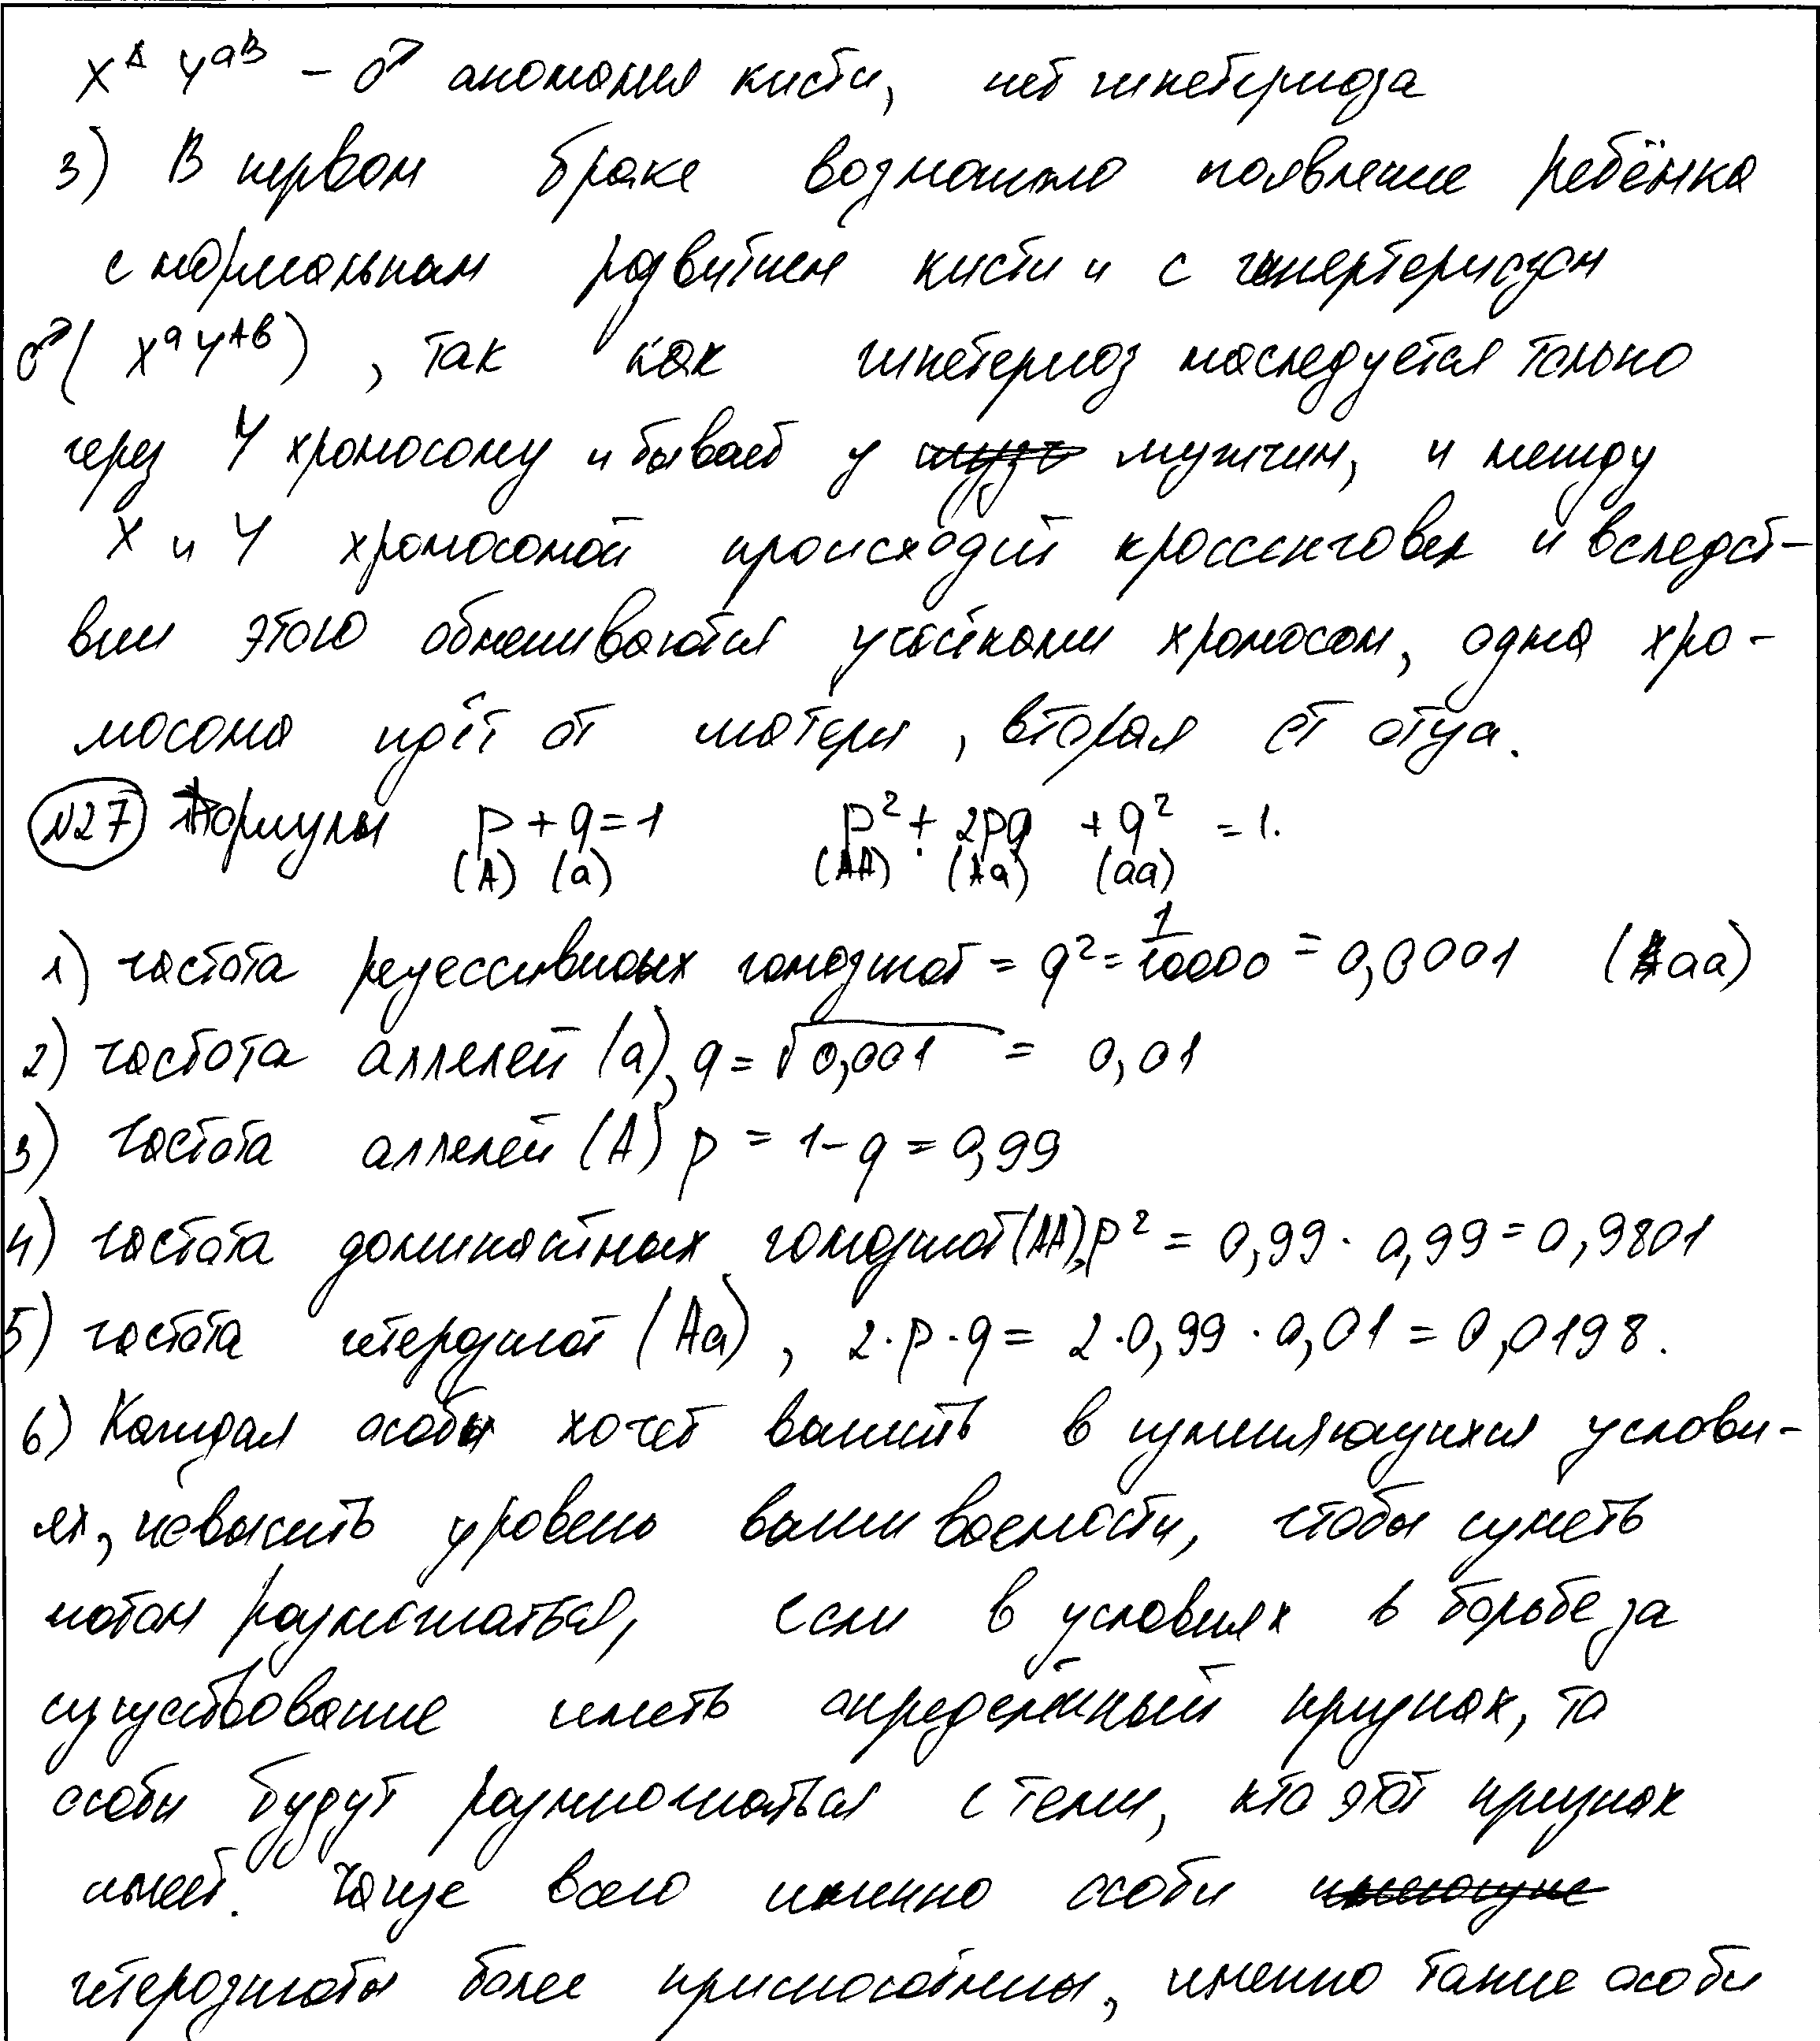 X^A Y^aB – ♂ аномалия кисти, нет гипетериоза
3) В первом браке возможно появление ребёнка
с нормальным развитием кисти и с гипертериозом
♂( X^a Y^Ab) , так как гипетериоз наследуется только
через Y хромосому и бывает у мужчин, и между
X и Y хромосомой происходит кроссинговек и вследст-
вии этого обмениваются участками хромосом, одна хро-
мосома идёт от матери , вторая от отца.
№27 Формулы p + q = 1 p² + 2pq + q² = 1.
(A) (a) (AA) (Aa) (aa)
1) частота рецессивных гомозигот = q² = 1/10000 = 0,0001 (aa)
2) частота аллелей (a), q = √0,001 = 0,01
3) частота аллелей (A) p = 1 – q = 0,99
4) частота доминатных гомозигот (AA), p² = 0,99 · 0,99 = 0,9801
5) частота гетерозигот (Aa) , 2·p·q = 2·0,99·0,01 = 0,0198.
6) Каждая особь хочет выжить в изменяющихся услови-
ях, повысить уровень выживаемости, чтобы суметь
потом размножаться, если в условиях в борьбе за
существование иметь определённый признак, то
особи будут размножаться с теми, кто этот признак
имеет. Чаще всего именно особи
гетерозиготы более приспособлены, именно такие особи